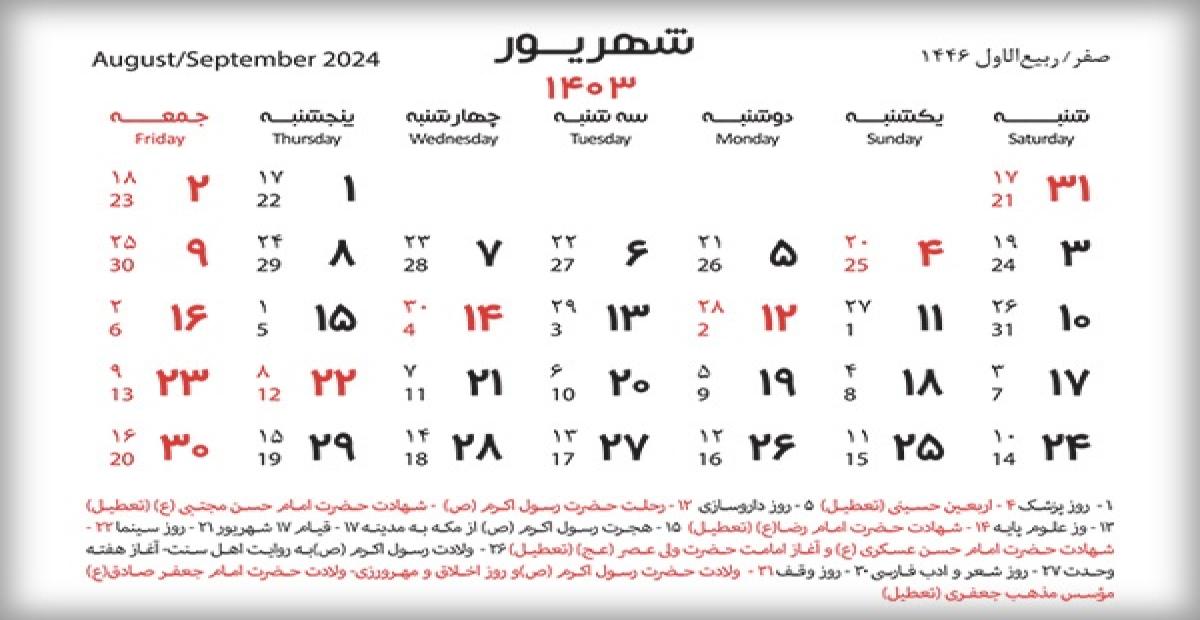 August/September 2024 شهریور صفر/ربیع‌الاول ۱۴۴۶
۱۴۰۳
شنبه یکشنبه دوشنبه سه شنبه چهارشنبه پنجشنبه جمعه
Saturday Sunday Monday Tuesday Wednesday Thursday Friday
۳۱ ۱۷ 21 ۱ ۱۷ 22 ۲ ۱۸ 23
۳ ۱۹ 24 ۴ ۲۰ 25 ۵ ۲۱ 26 ۶ ۲۲ 27 ۷ ۲۳ 28 ۸ ۲۴ 29 ۹ ۲۵ 30
۱۰ ۲۶ 31 ۱۱ ۲۷ 1 ۱۲ ۲۸ 2 ۱۳ ۲۹ 3 ۱۴ ۳۰ 4 ۱۵ ۱ 5 ۱۶ ۲ 6
۱۷ ۳ 7 ۱۸ ۴ 8 ۱۹ ۵ 9 ۲۰ ۶ 10 ۲۱ ۷ 11 ۲۲ ۸ 12 ۲۳ ۹ 13
۲۴ ۱۰ 14 ۲۵ ۱۱ 15 ۲۶ ۱۲ 16 ۲۷ ۱۳ 17 ۲۸ ۱۴ 18 ۲۹ ۱۵ 19 ۳۰ ۱۶ 20
۱- روز پزشک ۴ - اربعین حسینی (تعطیل) ۵ - روز داروسازی ۱۲ - رحلت حضرت رسول اکرم (ص) - شهادت حضرت امام حسن مجتبی (ع) (تعطیل)
۱۳ - وز علوم پایه ۱۴ - شهادت حضرت امام رضا(ع) (تعطیل) ۱۵ - هجرت رسول اکرم (ص) از مکه به مدینه ۱۷ - قیام ۱۷ شهریور ۲۱ - روز سینما ۲۲ -
شهادت حضرت امام حسن عسکری (ع) و آغاز امامت حضرت ولی عصر (عج) (تعطیل) ۲۶ - ولادت رسول اکرم (ص)به روایت اهل سنت- آغاز هفته
وحدت ۲۷ - روز شعر و ادب فارسی ۳۰ - روز وقف ۳۱ - ولادت حضرت رسول اکرم (ص)و روز اخلاق و مهرورزی- ولادت حضرت امام جعفر صادق(ع)
مؤسس مذهب جعفری (تعطیل)